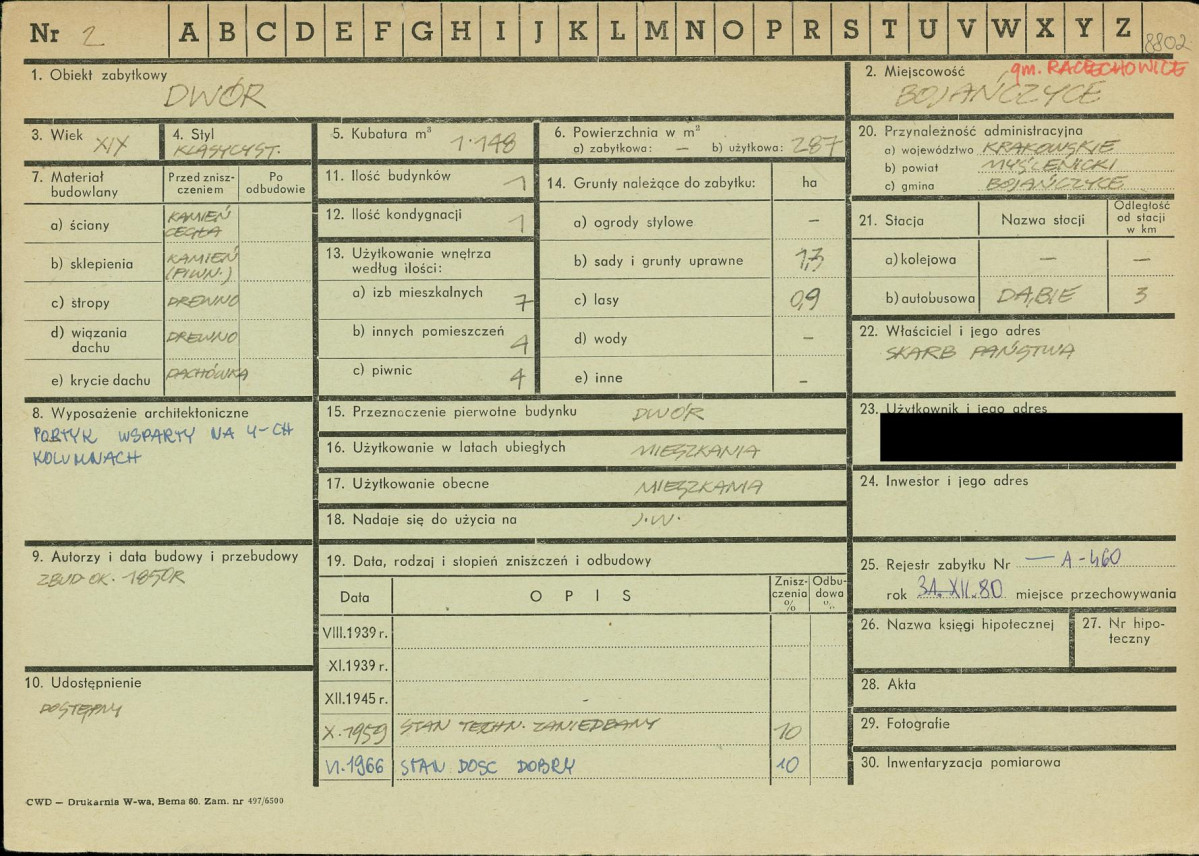 Nr 2 A B C D E F G H I J K L M N O P R S T U V W X Y Z 8802
1. Obiekt zabytkowy
DWÓR
2. Miejscowość gm. RACIECHOWICE
BOJAŃCZYCE
3. Wiek XIX
4. Styl
KLASYCYST.
5. Kubatura m³
1·148
6. Powierzchnia w m²
a) zabytkowa: — b) użytkowa: 287
20. Przynależność administracyjna
a) województwo KRAKOWSKIE
b) powiat MYŚLENICKI
c) gmina BOJAŃCZYCE
7. Materiał budowlany
Przed znisz-
czeniem
Po
odbudowie
a) ściany KAMIEŃ
CEGŁA
b) sklepienia KAMIEŃ
(PIWN.)
c) stropy DREWNO
d) wiązania
dachu DREWNO
e) krycie dachu DACHÓWKA
11. Ilość budynków 1
12. Ilość kondygnacji 1
13. Użytkowanie wnętrza
według ilości:
a) izb mieszkalnych 7
b) innych pomieszczeń 4
c) piwnic 4
14. Grunty należące do zabytku: ha
a) ogrody stylowe —
b) sady i grunty uprawne 1,3
c) lasy 0,9
d) wody —
e) inne —
21. Stacja Nazwa stacji
Odległość
od stacji
w km
a) kolejowa — —
b) autobusowa DĄBIE 3
22. Właściciel i jego adres
SKARB PAŃSTWA
8. Wyposażenie architektoniczne
PORTYK WSPARTY NA 4-CH
KOLUMNACH
15. Przeznaczenie pierwotne budynku DWÓR
16. Użytkowanie w latach ubiegłych MIESZKANIA
17. Użytkowanie obecne MIESZKANIA
18. Nadaje się do użycia na J.W.
23. Użytkownik i jego adres
24. Inwestor i jego adres
9. Autorzy i data budowy i przebudowy
ZBUD OK. 1850R
19. Data, rodzaj i stopień zniszczeń i odbudowy
Data O P I S
Znisz-
czenia
%
Odbu-
dowa
%
VIII.1939 r.
XI.1939 r.
XII.1945 r. -
X.1959 STAN TECHN. ZANIEDBANY 10
VI.1966 STAN DOSC DOBRY 10
25. Rejestr zabytku Nr — A-460
rok 31.XII.80 miejsce przechowywania
26. Nazwa księgi hipotecznej
27. Nr hipo-
teczny
10. Udostępnienie
DOSTĘPNY
28. Akta
29. Fotografie
30. Inwentaryzacja pomiarowa
CWD — Drukarnia W-wa, Bema 60. Zam. nr 497/6500